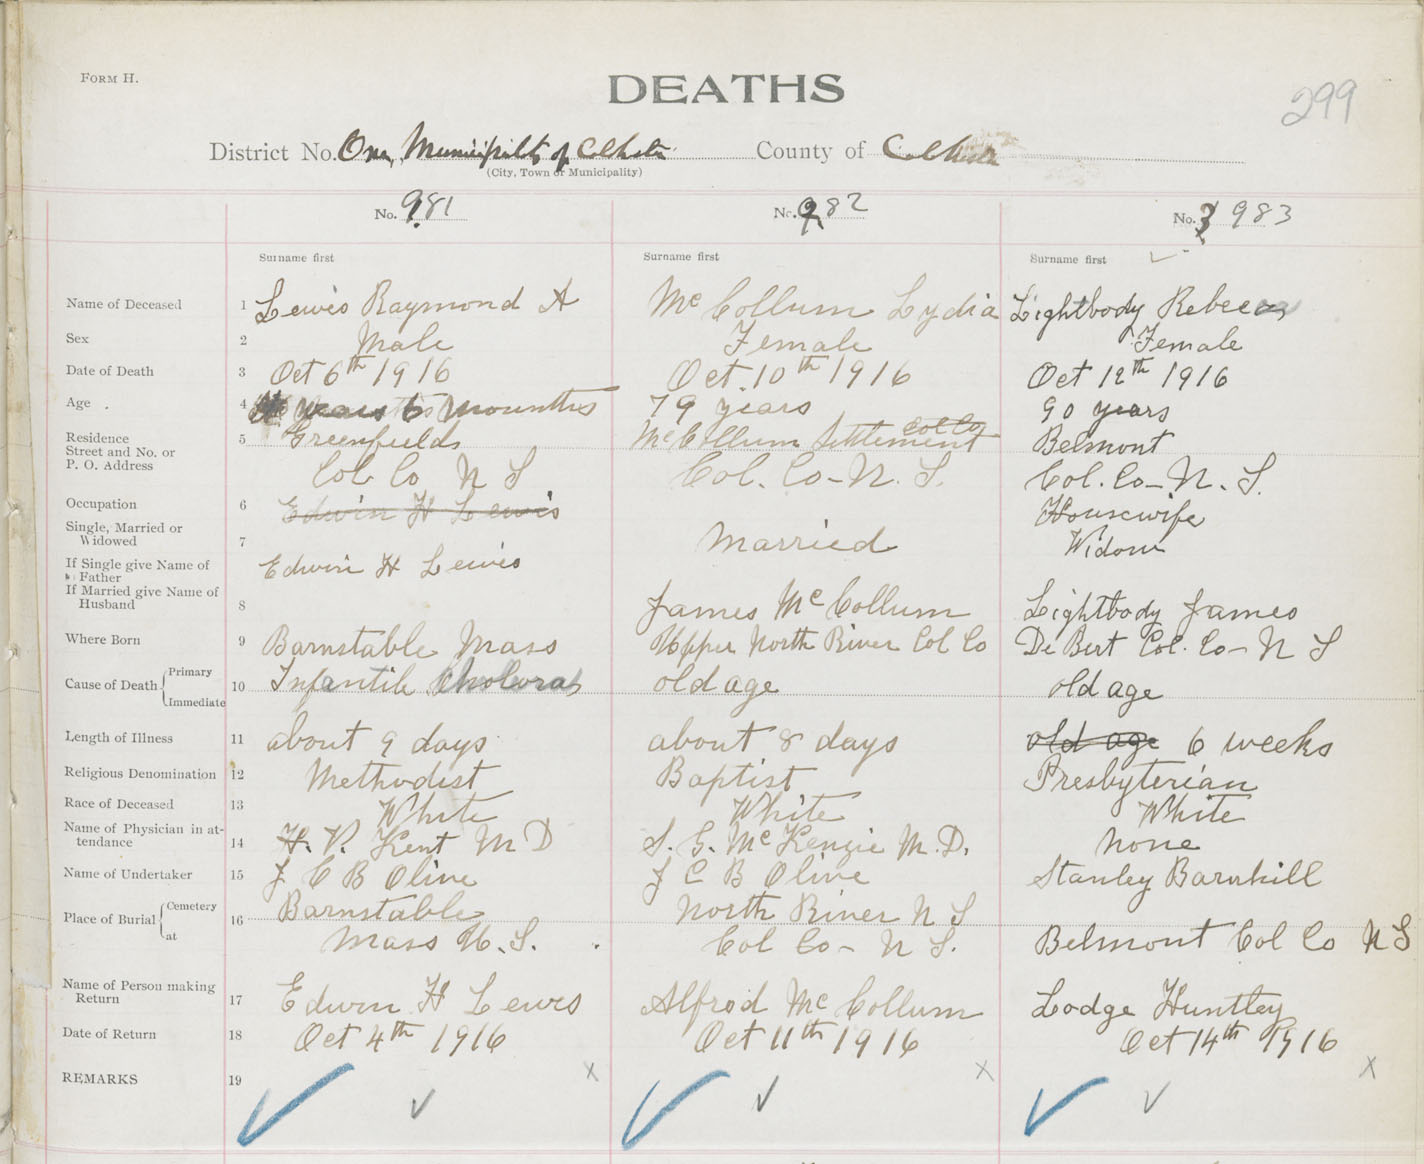 FORM H.
DEATHS
299
District No. One, Municipality of Colchester County of Colchester
(City, Town or Municipality)
No. 981 No. 982 No. 3 983
Surname first Surname first Surname first
Name of Deceased 1 Lewis Raymond A McCollum Lydia Lightbody Rebecca
Sex 2 Male Female Female
Date of Death 3 Oct 6th 1916 Oct. 10th 1916 Oct 12th 1916
Age 4 years 6 mounths 79 years 90 years
Residence 5 Greenfields McCollum Settlement Col Co Belmont
Street and No. or
P. O. Address Col. Co N S Col. Co - N. S. Col. Co - N. S.
Occupation 6 Edwin H Lewis Housewife
Single, Married or
Widowed 7 Married Widow
If Single give Name of
Father Edwin H Lewis
If Married give Name of
Husband 8 James McCollum Lightbody James
Where Born 9 Barnstable Mass Upper North River Col Co De Bert Col. Co - N S
Cause of Death Primary
Immediate 10 Infantile Cholora old age old age
Length of Illness 11 about 9 days about 8 days old age 6 weeks
Religious Denomination 12 Methodist Baptist Presbyterian
Race of Deceased 13 White White White
Name of Physician in at-
tendance 14 H. V. Kent M D S. G. McKenzie M.D. none
Name of Undertaker 15 J C B Olive J C B Olive Stanley Barnhill
Place of Burial Cemetery 16 Barnstable North River N S
at Mass U. S. Col Co - N S. Belmont Col Co N S
Name of Person making
Return 17 Edwin H Lewis Alfred McCollum Lodge Huntley
Date of Return 18 Oct 4th 1916 Oct 11th 1916 Oct 14th 1916
REMARKS 19 x x x